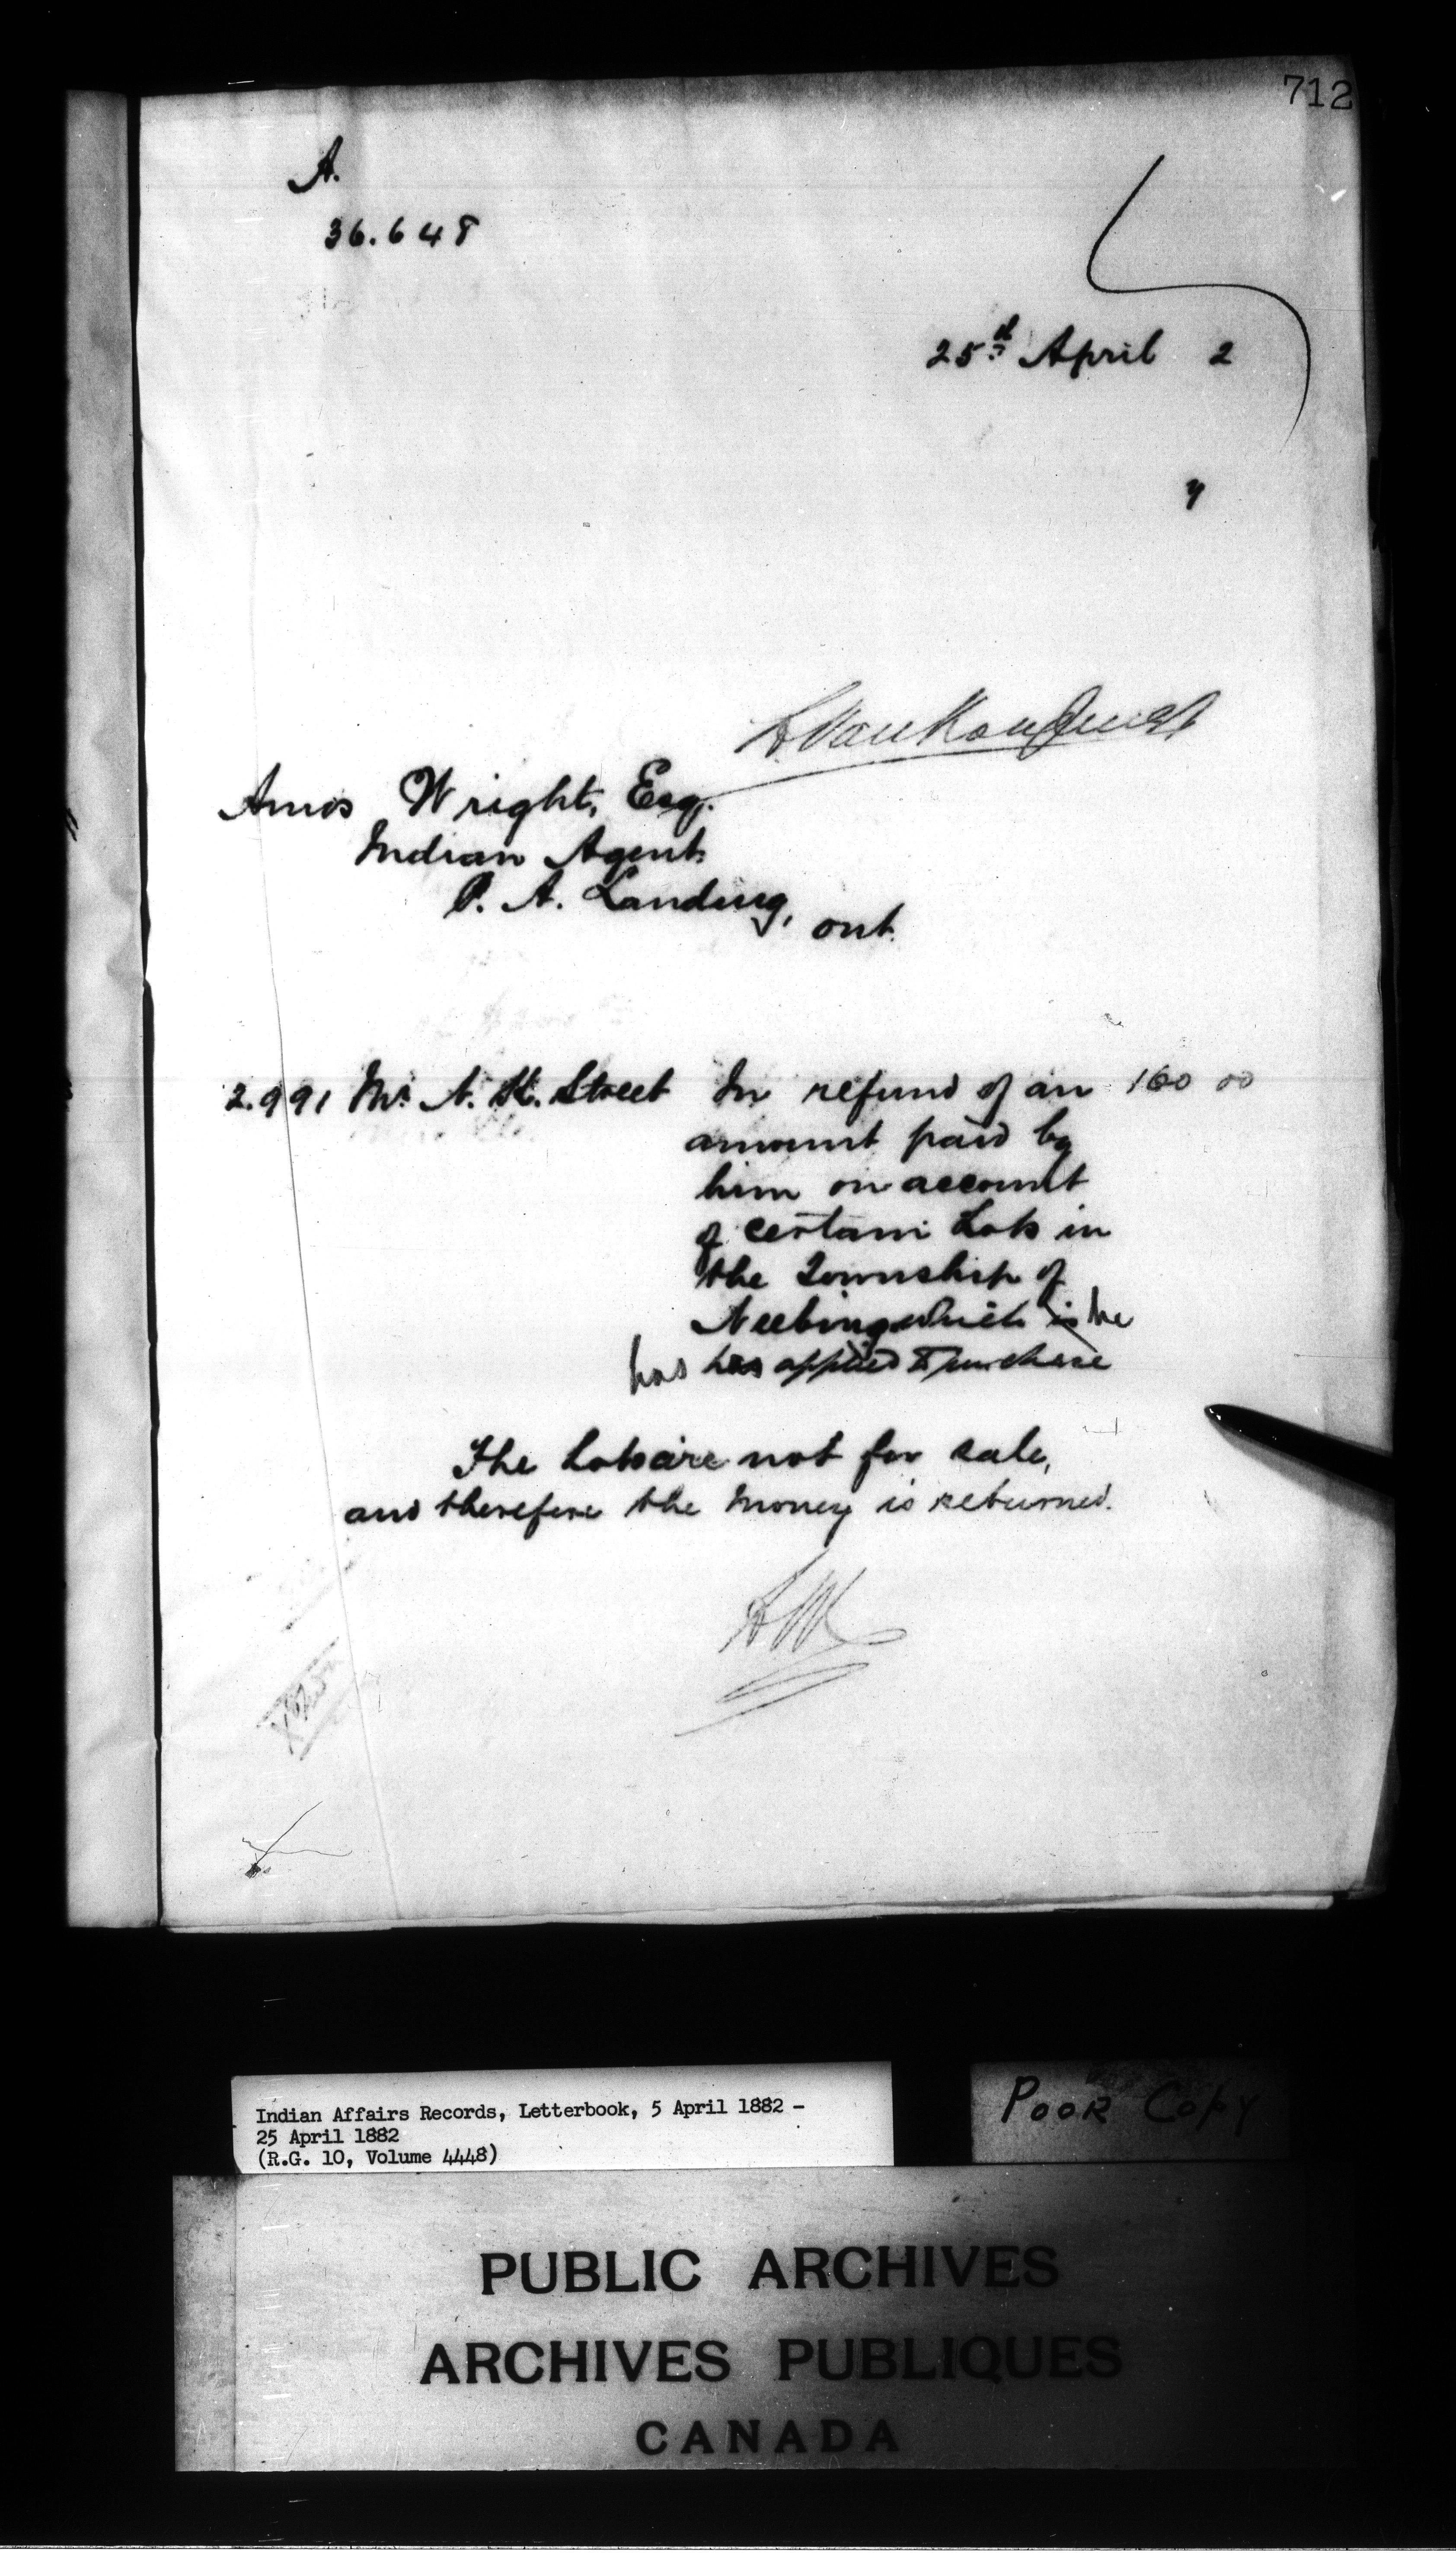 712
A.
36.648
25th April 2
y
L VanKoughnet
Amos Wright, Esq.
Indian Agent
P. A. Landing, Ont.
2.991 Mr. A. K. Street In refund of an 160 00
amount paid by
him on account
of certain Lots in
the Township of
Neebing which is he
has has applied to purchase
The Lots are not for sale,
and therefore the money is returned.
Indian Affairs Records, Letterbook, 5 April 1882 -
25 April 1882
(R.G. 10, Volume 4448)
POOR COPY
PUBLIC ARCHIVES
ARCHIVES PUBLIQUES
CANADA